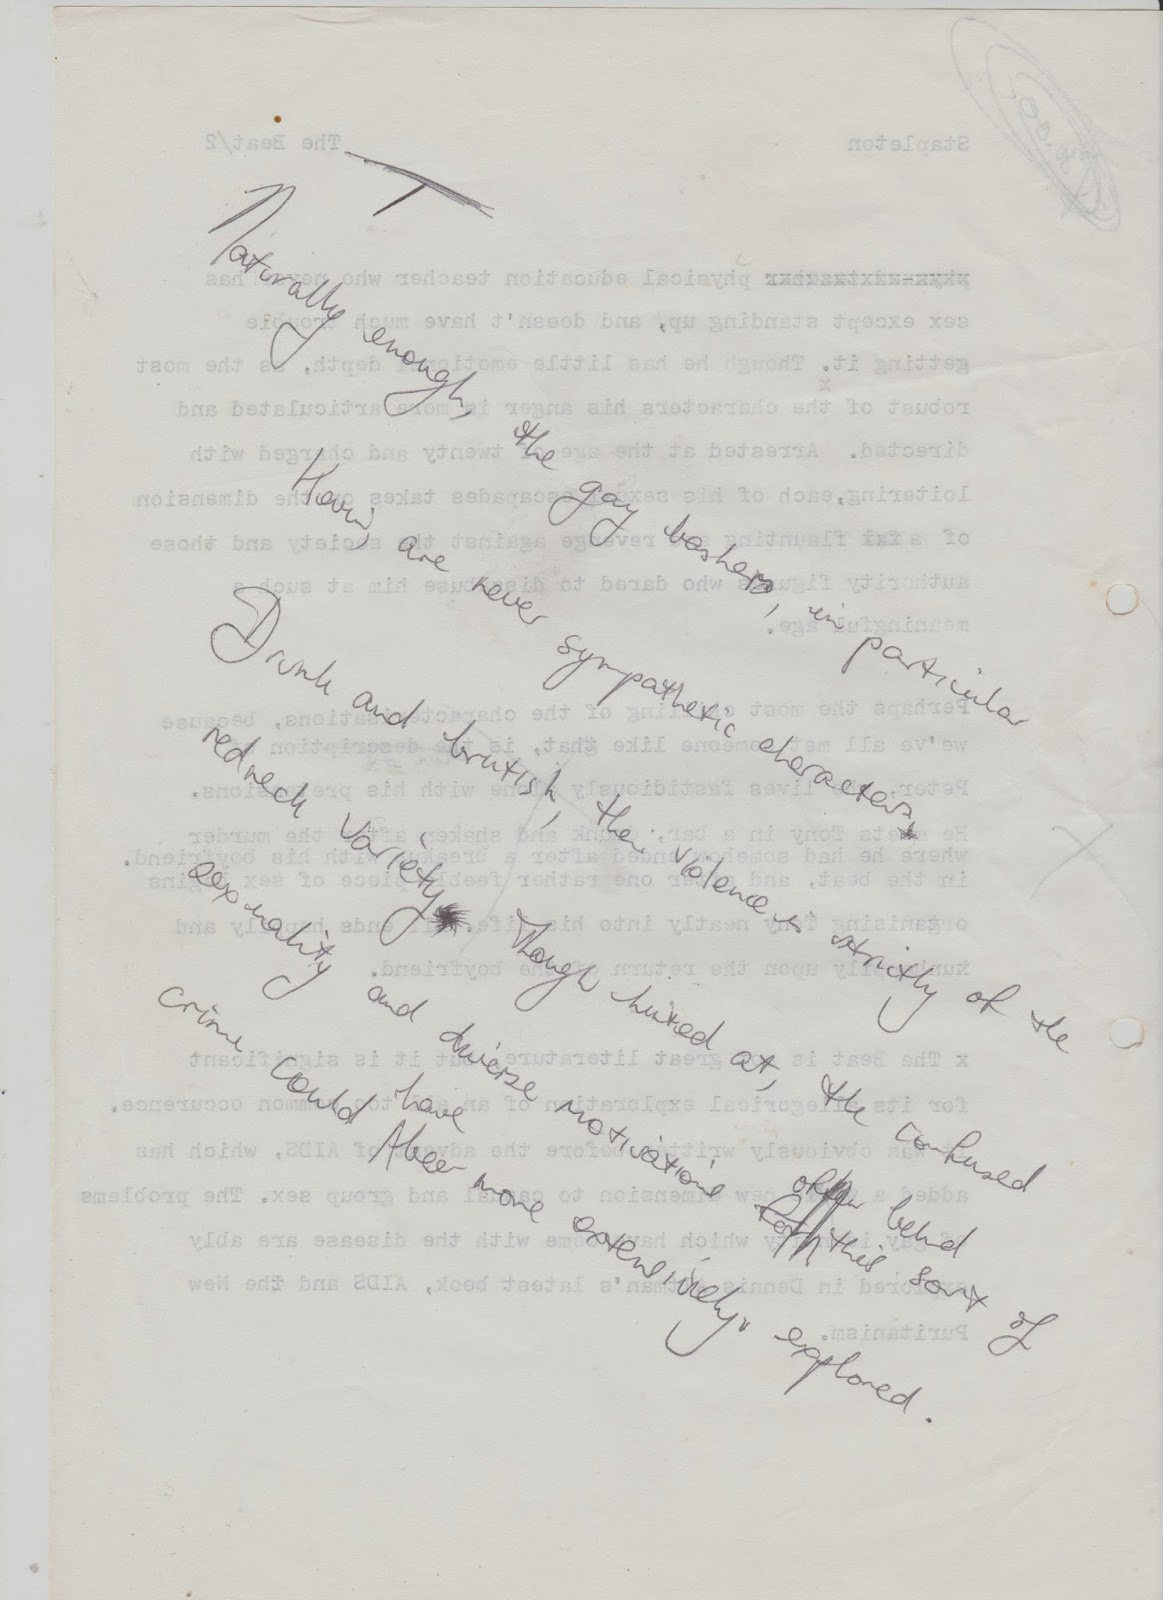 Naturally enough, the gay bashers, in particular
Kevin, are never sympathetic characters.
Drunk and brutish, their violence is strictly of the
redneck variety. Though hinted at, the confused
sexuality and diverse motivations often behind
this sort of
crime could have been more extensively explored.
Stapleton The Beat/2
physical education teacher who never has
sex except standing up, and doesn't have much trouble
getting it. Though he has little emotional depth, as the most
robust of the characters his anger is more articulated and
directed. Arrested at the age of twenty and charged with
loitering, each of his sexual escapades takes on the dimension
of a flaunting and revenge against the society and those
authority figures who dared to disabuse him at such a
meaningful age.
Perhaps the most of the characterisations, because
we've all met someone like that, is the description of
Peter, who lives fastidiously alone with his pretensions.
He meets Tony in a bar, drunk and shaken after the murder
where he had somehow ended after a breakup with his boyfriend.
in the beat, and after one rather feeble piece of sex begins
organising Tony neatly into his life. It ends happily and
upon the return of the boyfriend.
x The Beat is great literature but it is significant
for its allegorical exploration of an all too common occurence.
It was obviously written before the advent of AIDS, which has
added a new dimension to casual and group sex. The problems
of gay identity which have come with the disease are ably
explored in Dennis Altman's latest book, AIDS and the New
Puritanism.